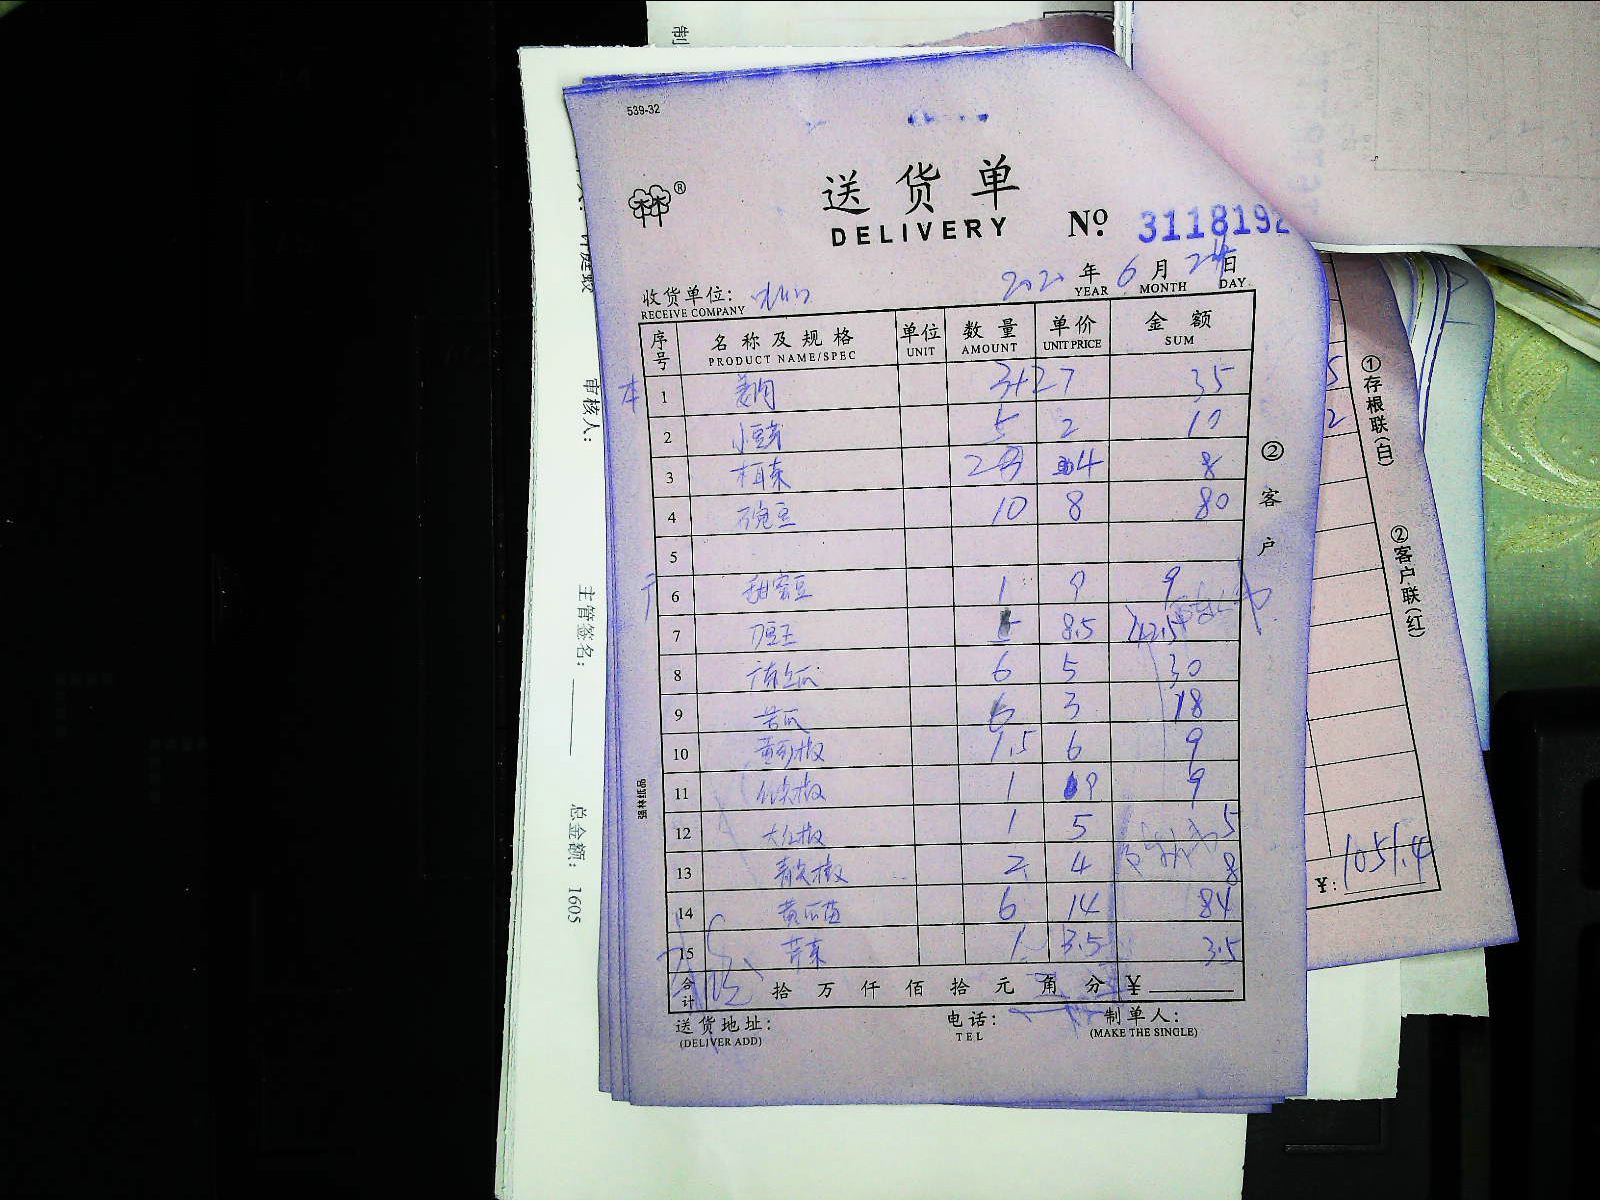 制
539-32
®
送货单
DELIVERY
№ 3118192
2020 年 6 月 24 日
YEAR MONTH DAY
收货单位:
RECEIVE COMPANY
序号 名称及规格 单位 数量 单价 金额
PRODUCT NAME/SPEC UNIT AMOUNT UNIT PRICE SUM
1 3+2 7 35
2 小豆芽 5 2 10
3 2 4 8
4 豌豆 10 8 80
5
6 甜蜜豆 1 9 9
7 5 8.5 42.5
8 6 5 30
9 苦瓜 6 3 18
10 黄彩椒 1.5 6 9
11 1 9 9
12 大红椒 1 5 5
13 青尖椒 2 4 8
14 黄瓜苗 6 14 84
15 芹菜 1 3.5 3.5
合计 拾万仟佰拾元角分 ¥
送货地址: 电话: 制单人:
(DELIVER ADD) TEL (MAKE THE SINGLE)
②客户
强林纸品
审核人:
主管签名:
总金额: 1605
①存根联(白)
②客户联(红)
5
2
¥: 1051.4